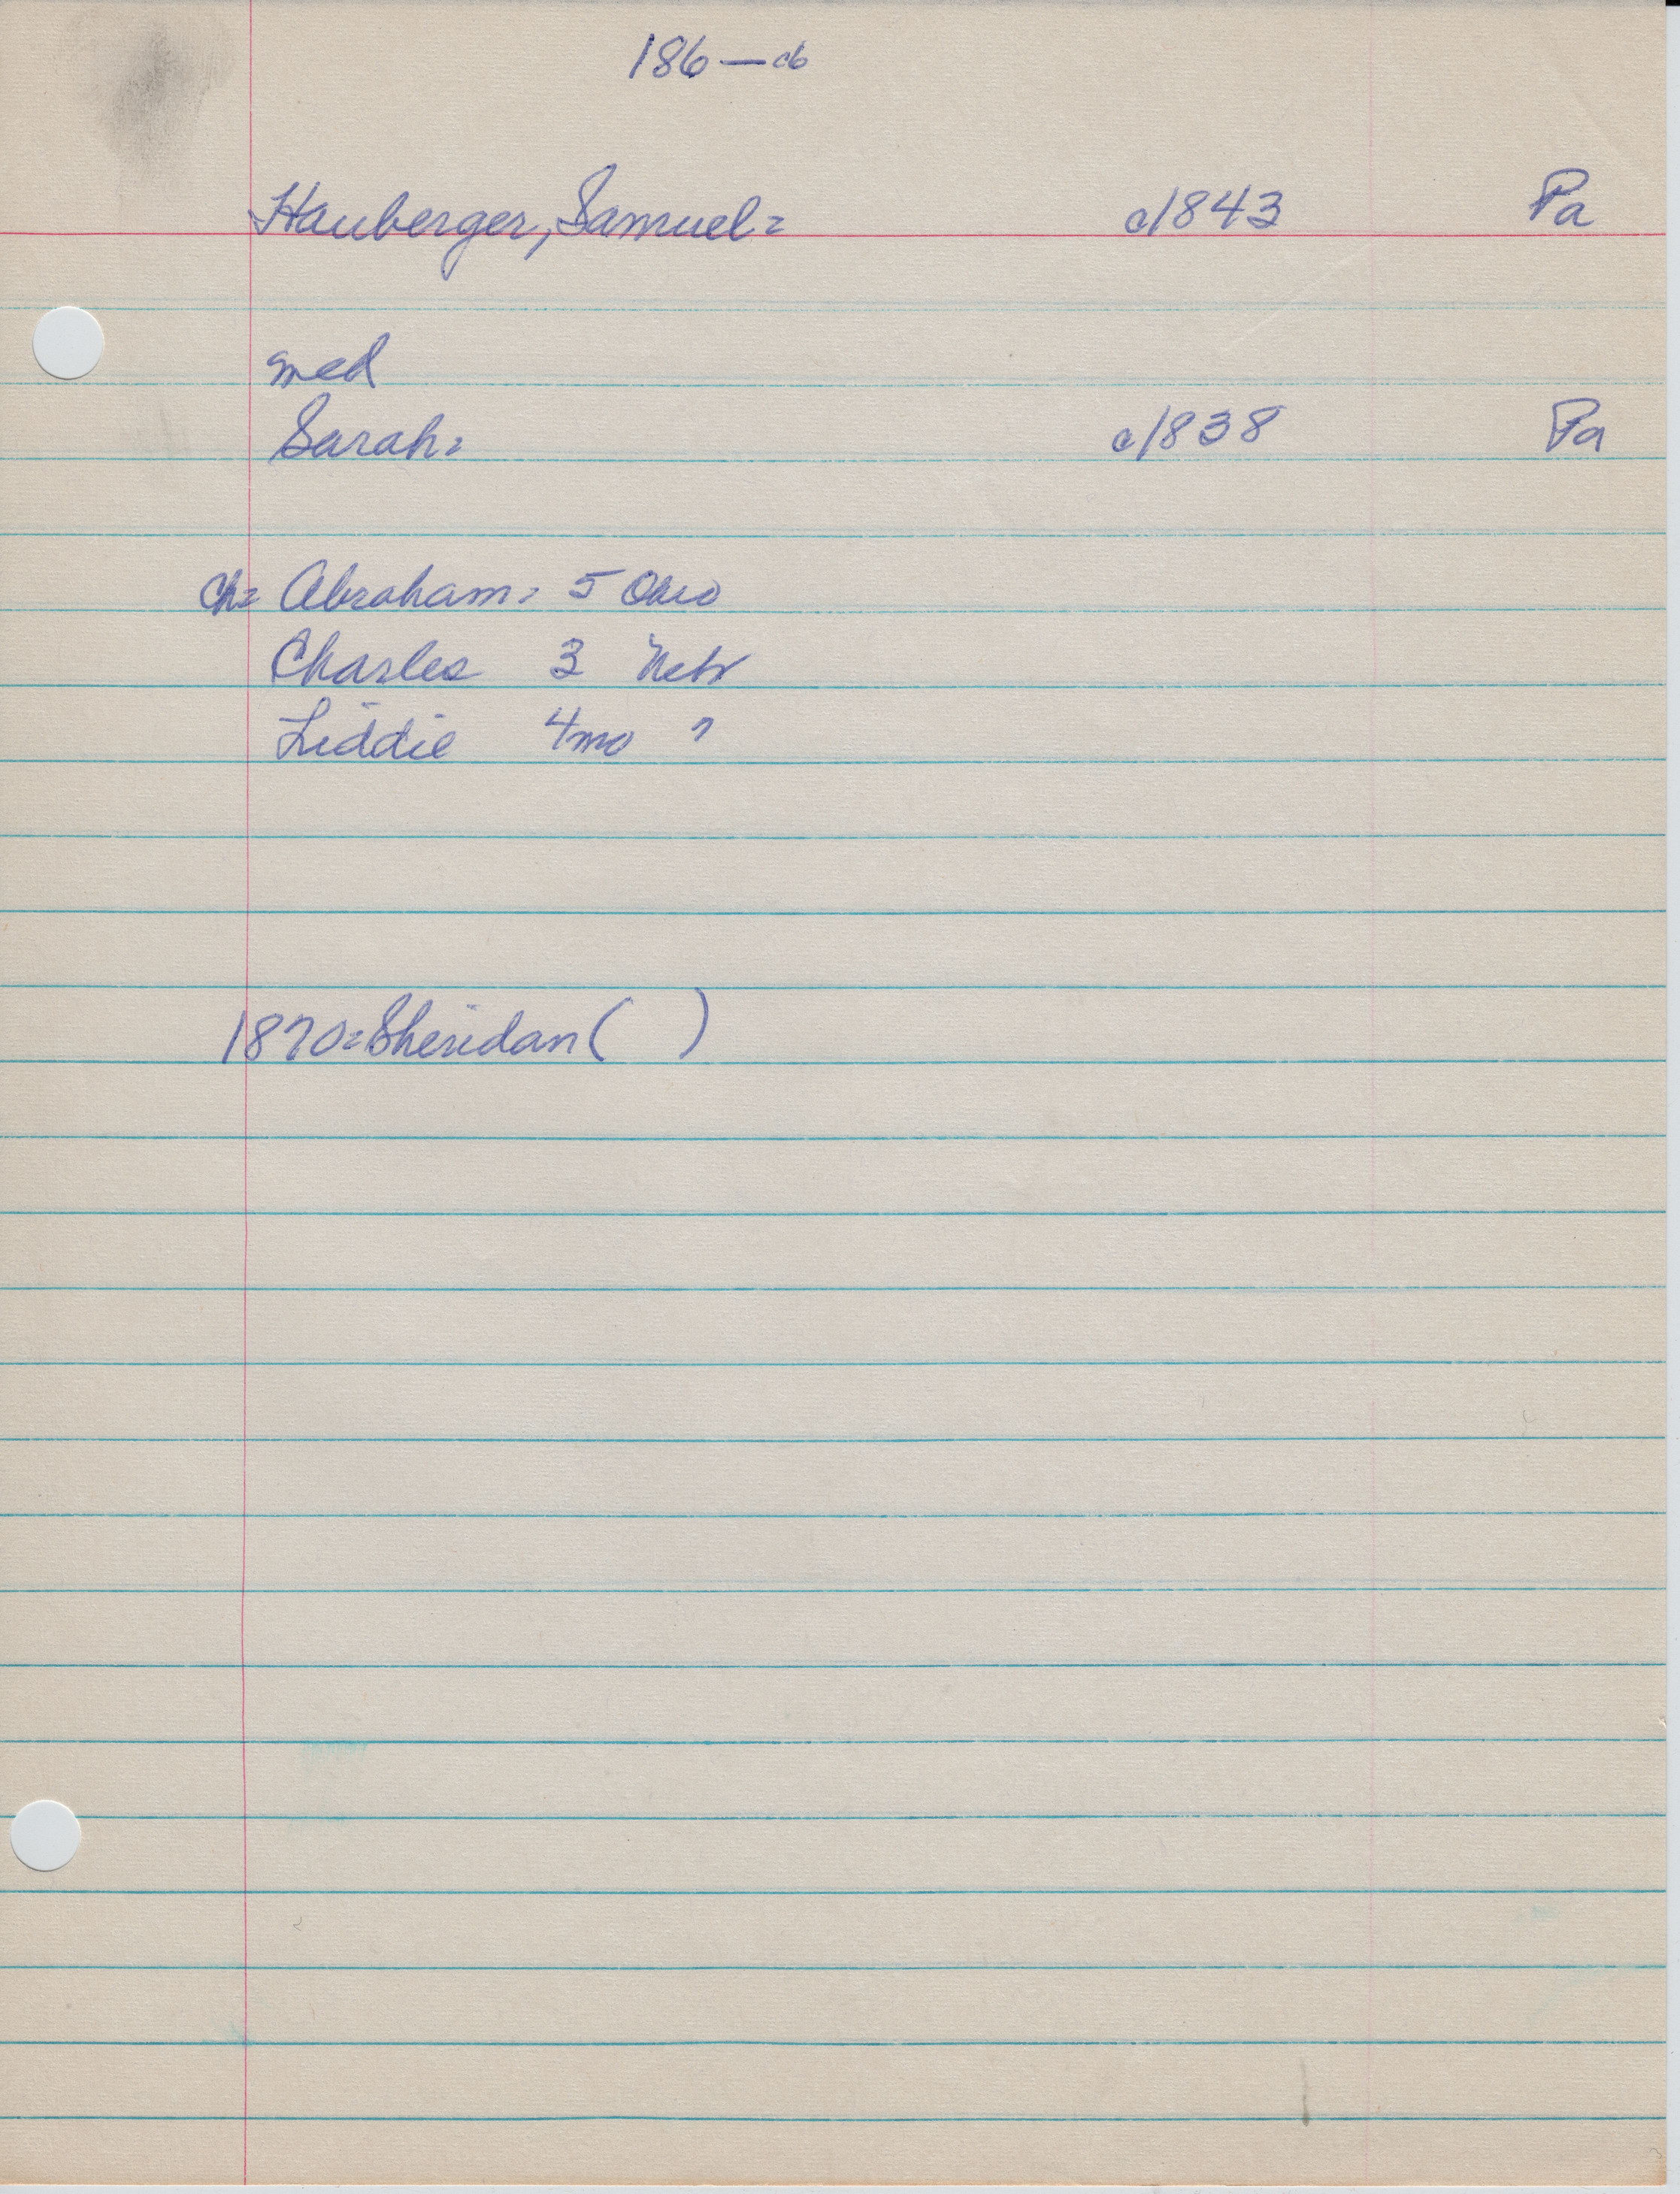 186—cb
Hauberger, Samuel= c/1843 Pa
med
Sarah= c/1838 Pa
ch= Abraham= 5 Ohio
Charles 3 Nebr
Liddie 4mo "
1870=Sheridan( )